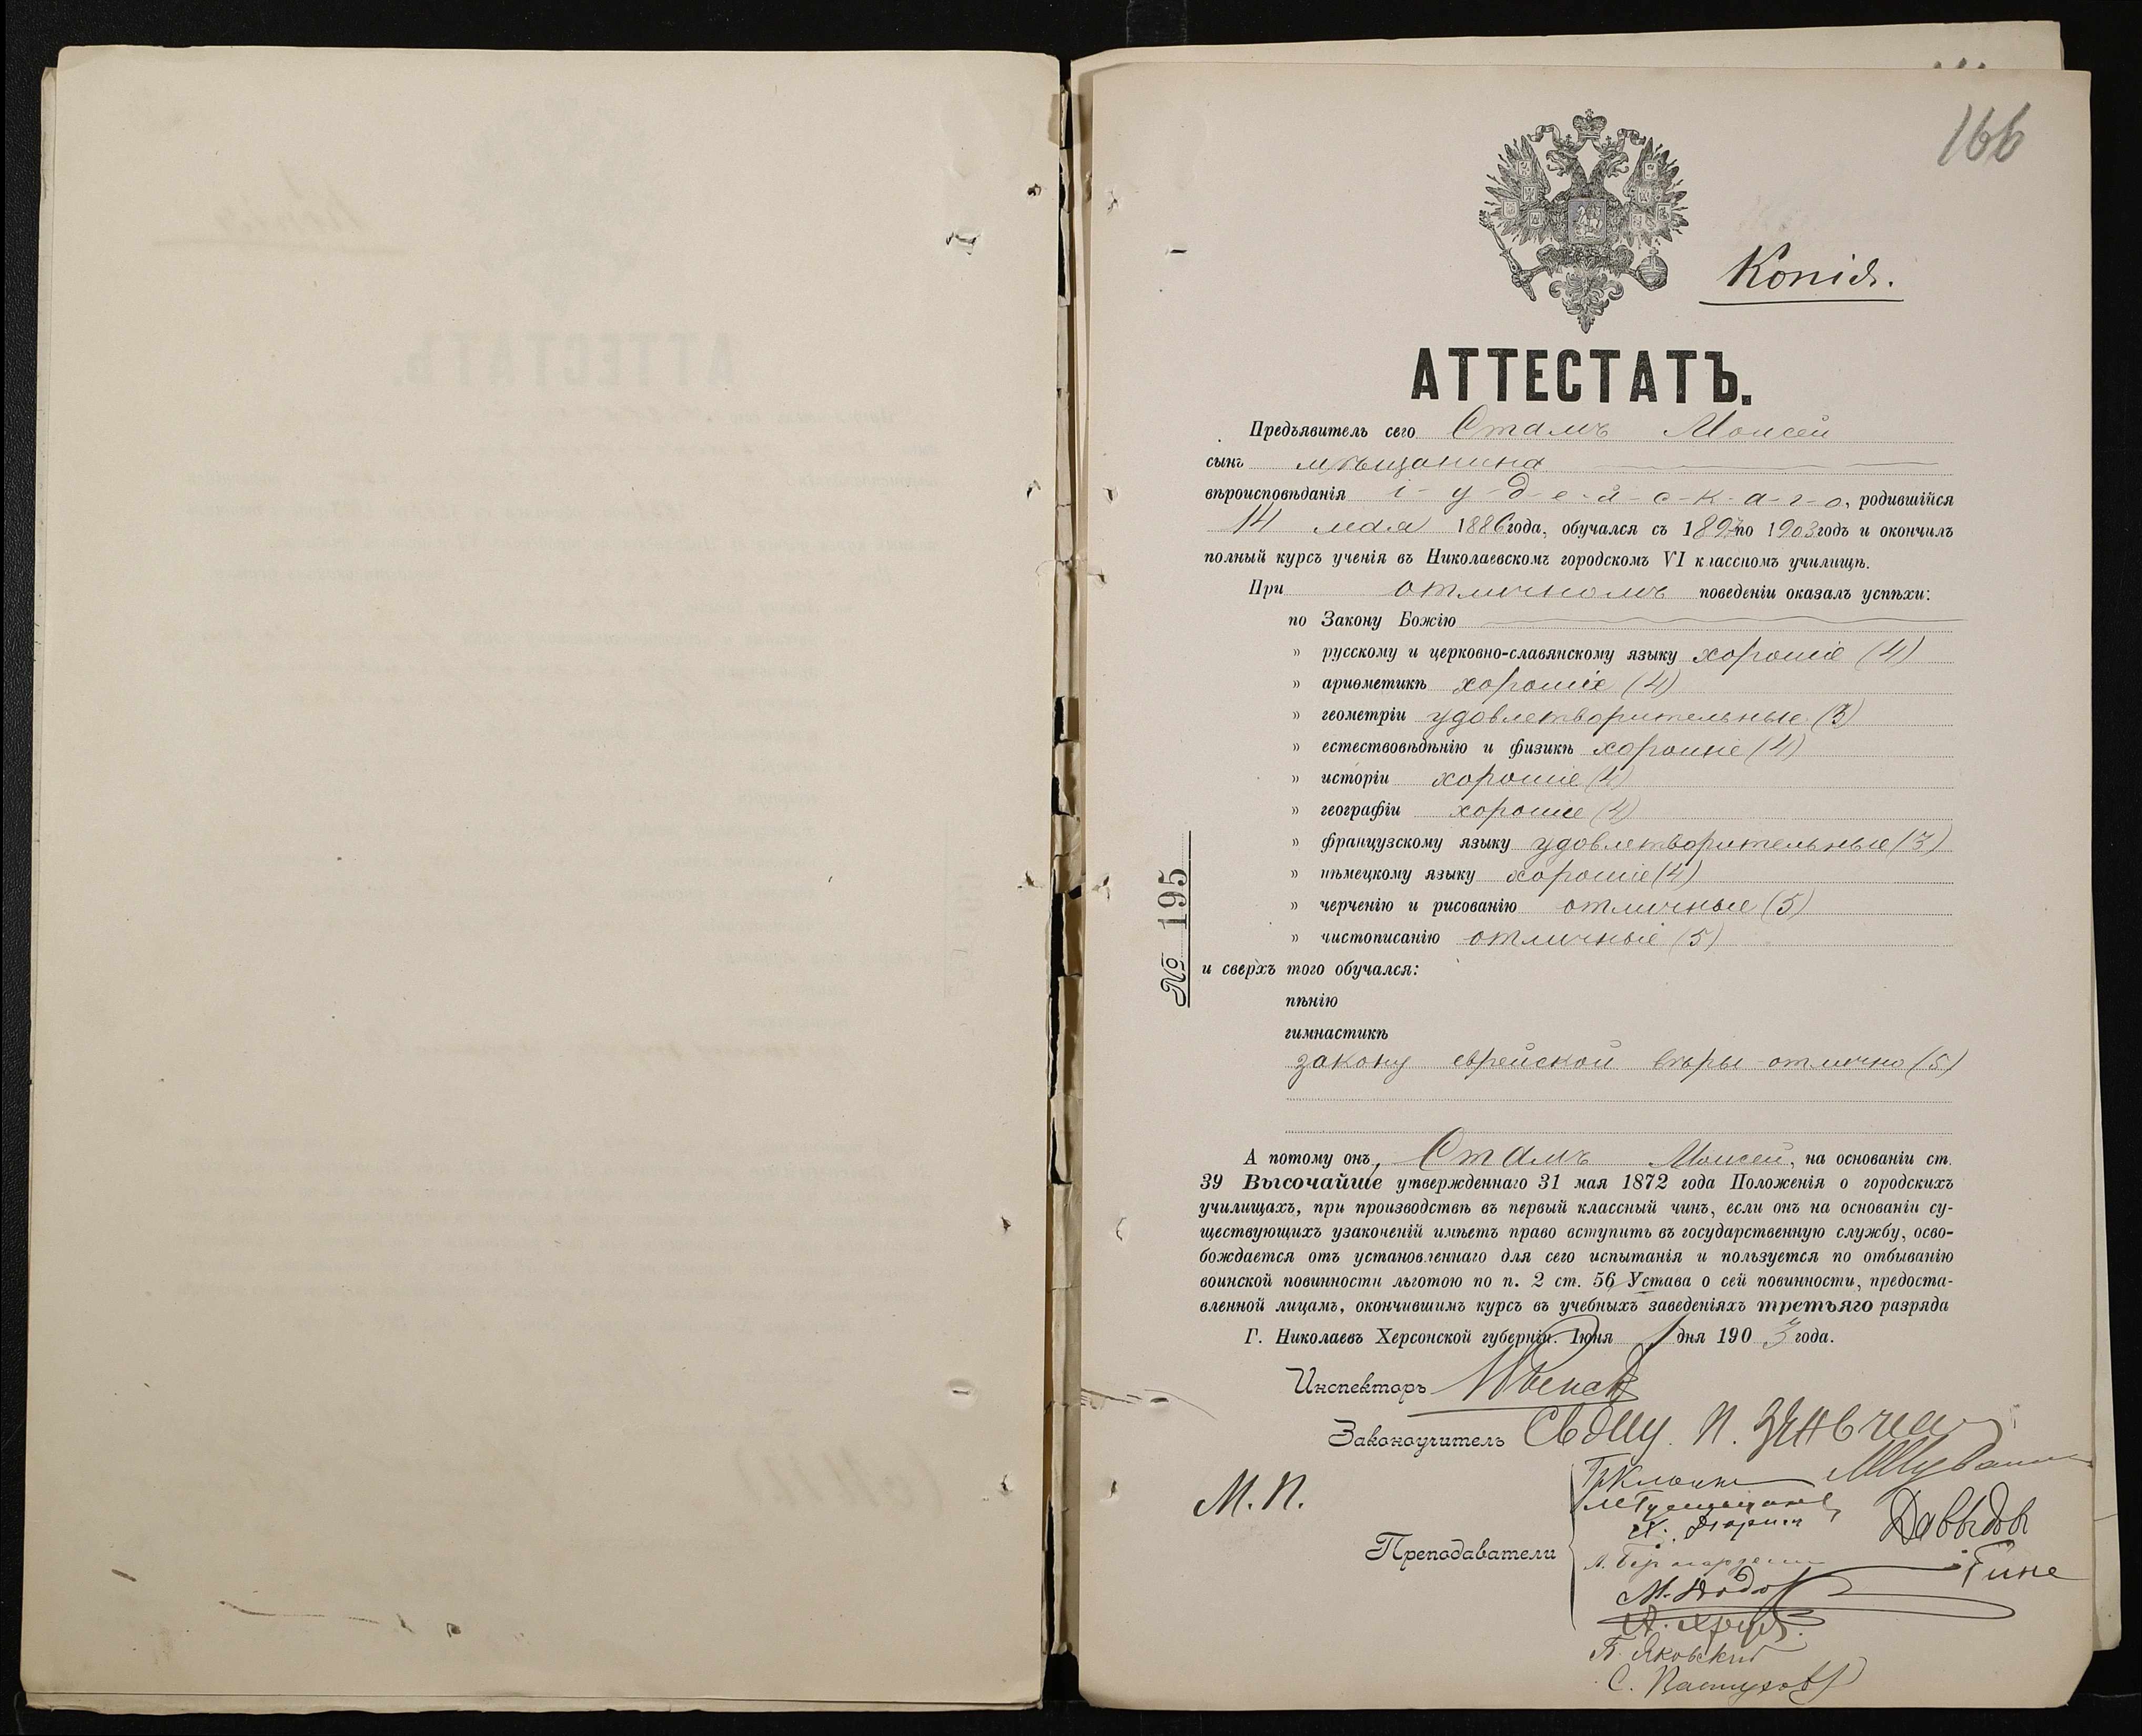 166
Копія.
АТТЕСТАТЪ.
Предъявитель сего Стамъ Моисей
сынъ мѣщанина
вѣроисповѣданія і-у-д-е-й-с-к-а-г-о, родившійся
14 мая 1886 года, обучался съ 1897 по 1903 годъ и окончилъ
полный курсъ ученія въ Николаевскомъ городскомъ VI классномъ училищѣ.
При отличномъ поведеніи оказалъ успѣхи:
по Закону Божію
» русскому и церковно-славянскому языку хорошіе (4)
» ариѳметикѣ хорошіе (4)
» геометріи удовлетворительные (3)
» естествовѣдѣнію и физикѣ хорошіе (4)
» исторіи хорошіе (4)
» географіи хорошіе (4)
» французскому языку удовлетворительные (3)
» нѣмецкому языку хорошіе (4)
» черченію и рисованію отличные (5)
» чистописанію отличные (5)
№ 195
и сверхъ того обучался:
пѣнію
гимнастикѣ
закону еврейской вѣры отлично (5)
А потому онъ, Стамъ Моисей, на основаніи ст.
39 Высочайше утвержденнаго 31 мая 1872 года Положенія о городскихъ
училищахъ, при производствѣ въ первый классный чинъ, если онъ на основаніи су-
ществующихъ узаконеній имѣетъ право вступить въ государственную службу, осво-
бождается отъ установленнаго для сего испытанія и пользуется по отбыванію
воинской повинности льготою по п. 2 ст. 56 Устава о сей повинности, предоста-
вленной лицамъ, окончившимъ курсъ въ учебныхъ заведеніяхъ третьяго разряда
Г. Николаевъ Херсонской губерніи. Іюня 1 дня 1903 года.
Инспекторъ
Законоучитель Свящ. П.
М. П.
Преподаватели
Давыдовъ
Гине
В. Яковскій
С. Пастуховъ